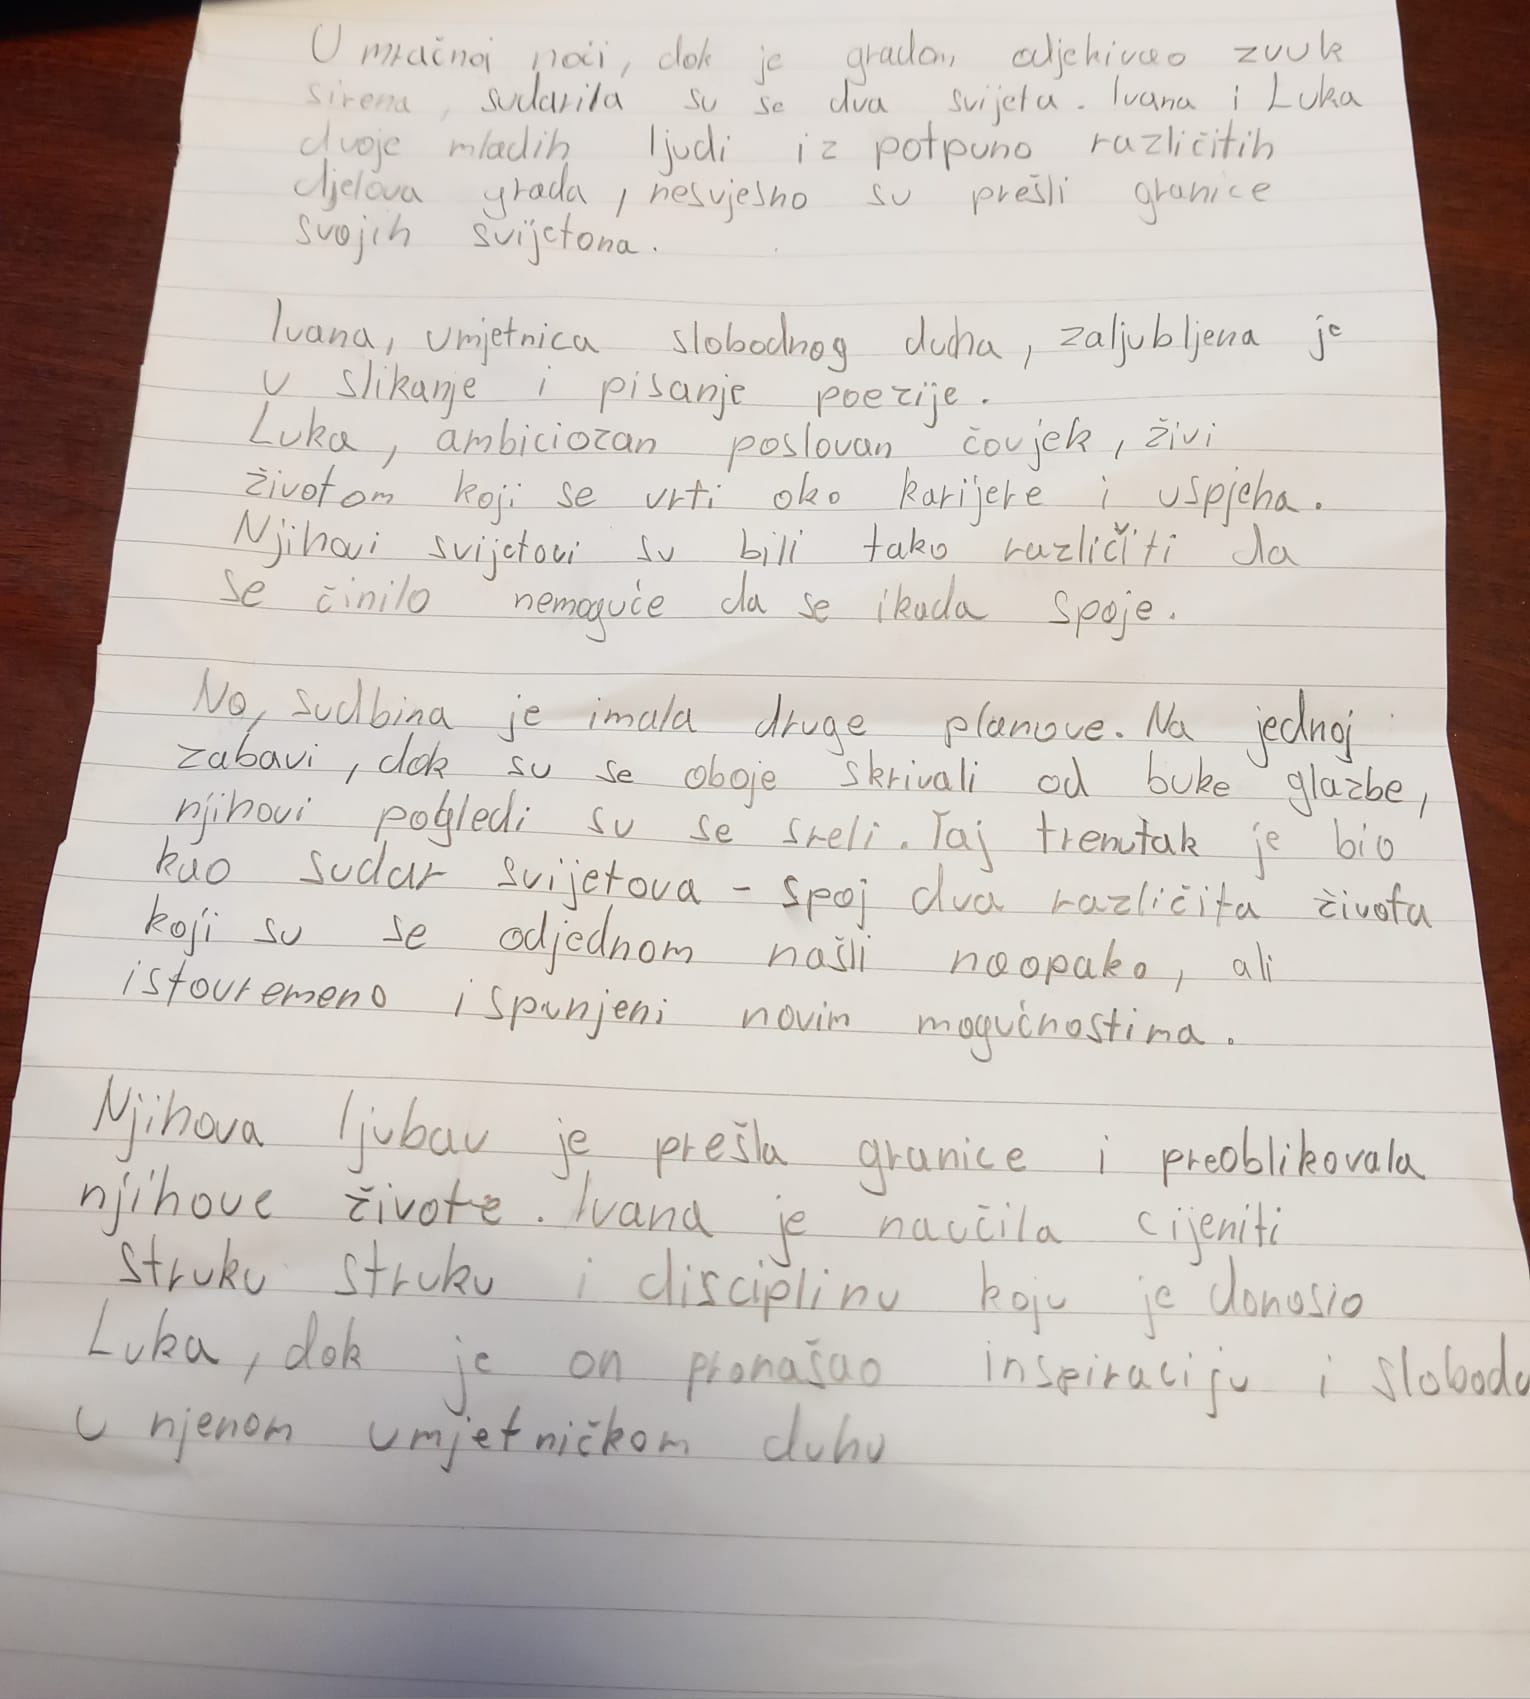 U mračnoj noći, dok je gradom odjekivao zvuk
sirena, sudarila su se dva svijeta. Ivana i Luka
dvoje mladih ljudi iz potpuno različitih
djelova grada, nesvjesno su prešli granice
svojih svijetona.
Ivana, umjetnica slobodnog duha, zaljubljena je
u slikanje i pisanje poezije.
Luka, ambiciozan poslovan čovjek, živi
životom koji se vrti oko karijere i uspjeha.
Njihovi svijetovi su bili tako različiti da
se činilo nemoguće da se ikada spoje.
No, sudbina je imala druge planove. Na jednoj
zabavi, dok su se oboje skrivali od buke glazbe,
njihovi pogledi su se sreli. Taj trenutak je bio
kao sudar svijetova - spoj dva različita života
koji su se odjednom našli naopako, ali
istovremeno ispunjeni novim mogućnostima.
Njihova ljubav je prešla granice i preoblikovala
njihove živote. Ivana je naučila cijeniti
struku struku i disciplinu koju je donosio
Luka, dok je on pronašao inspiraciju i slobodu
u njenom umjetničkom duhu